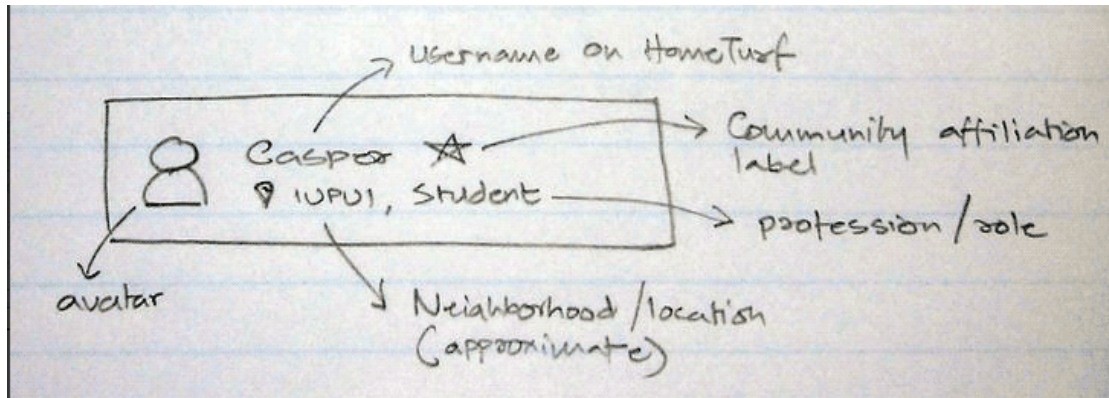 Username on HomeTurf
Casper
IUPUI, Student
Community affiliation
label
profession/role
avatar
Neighborhood/location
(approximate)